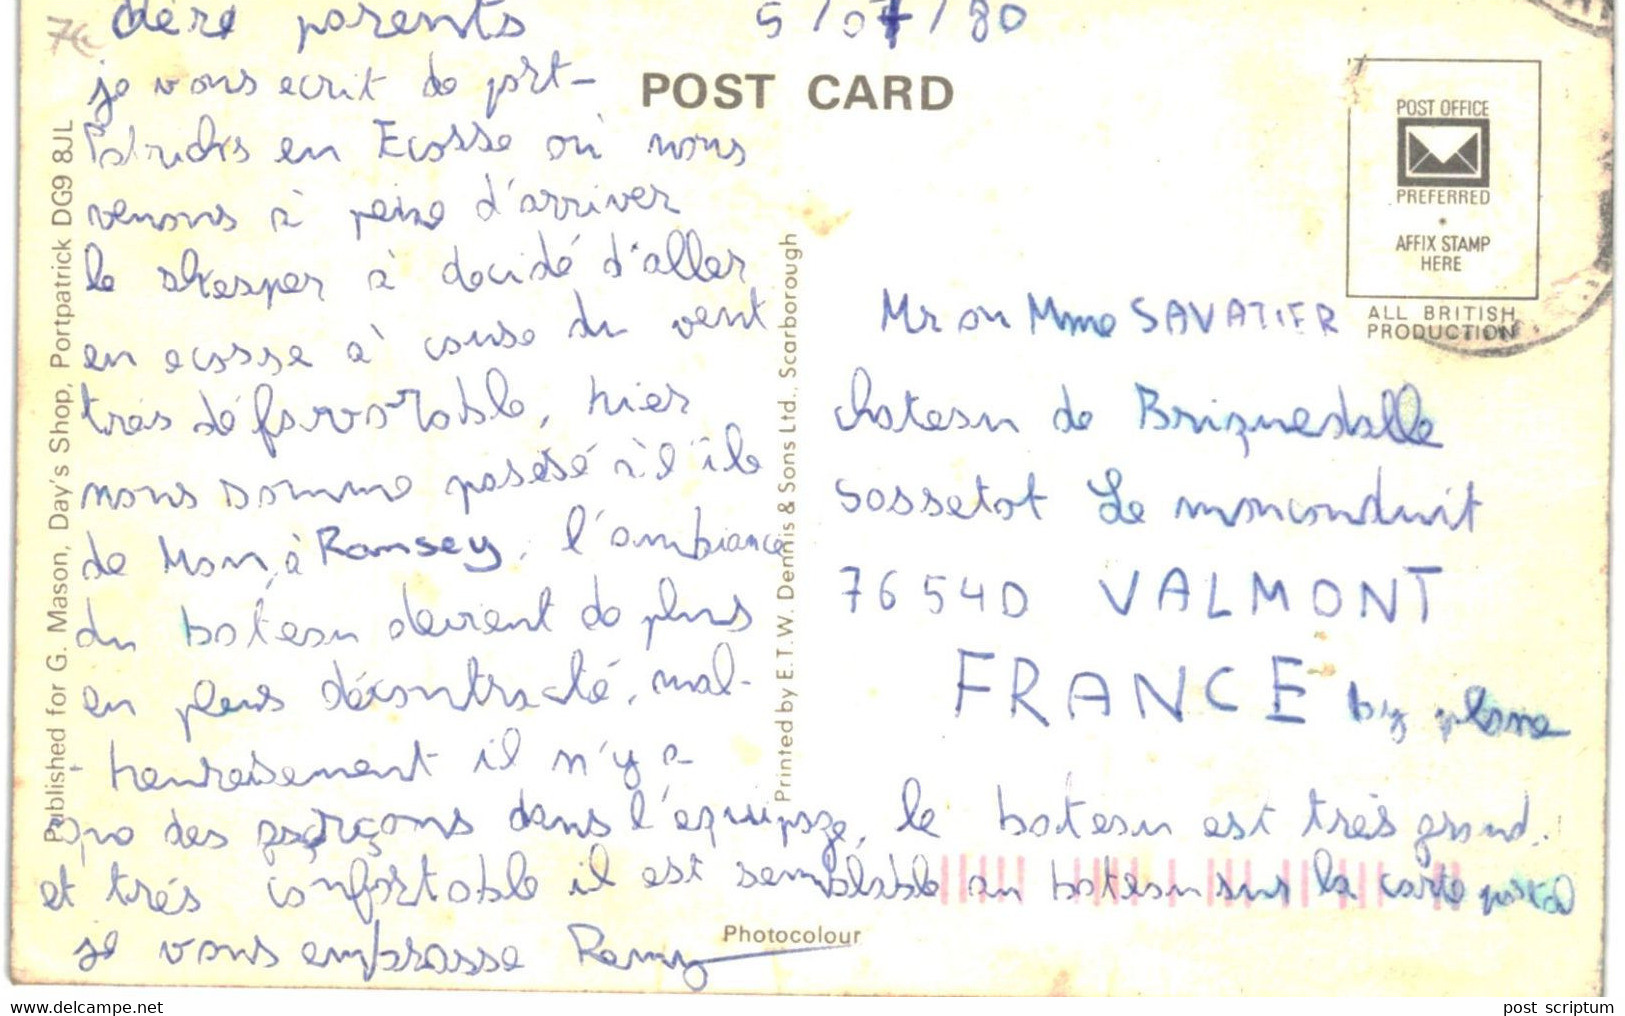 chers parents 5/07/80
je vous ecrit de port-
Patricks en Ecosse où nous
venons à peine d'arriver
le skeeper à decidé d'aller
en ecosse à cause du vent
très défavorable, hier
nous somme passé à l'île
de Man, à Ramsey, l'ambiance
du bateau devient de plus
en plus décontracté, mal-
heureusement il n'y a
que des garçons dans l'équipage, le bateau est très grand.
et très confortable il est semblable au bateau sur la carte postale
je vous embrasse Remy
POST CARD
POST OFFICE
PREFERRED
AFFIX STAMP
HERE
ALL BRITISH
PRODUCTION
Mr ou Mme SAVATIER
chateau de Briquedalle
Sassetot Le mauconduit
76540 VALMONT
FRANCE by plane
Published for G. Mason, Day's Shop, Portpatrick DG9 8JL
Printed by E.T.W. Dennis & Sons Ltd., Scarborough
Photocolour
https://www.delcampe.net
post_scriptum